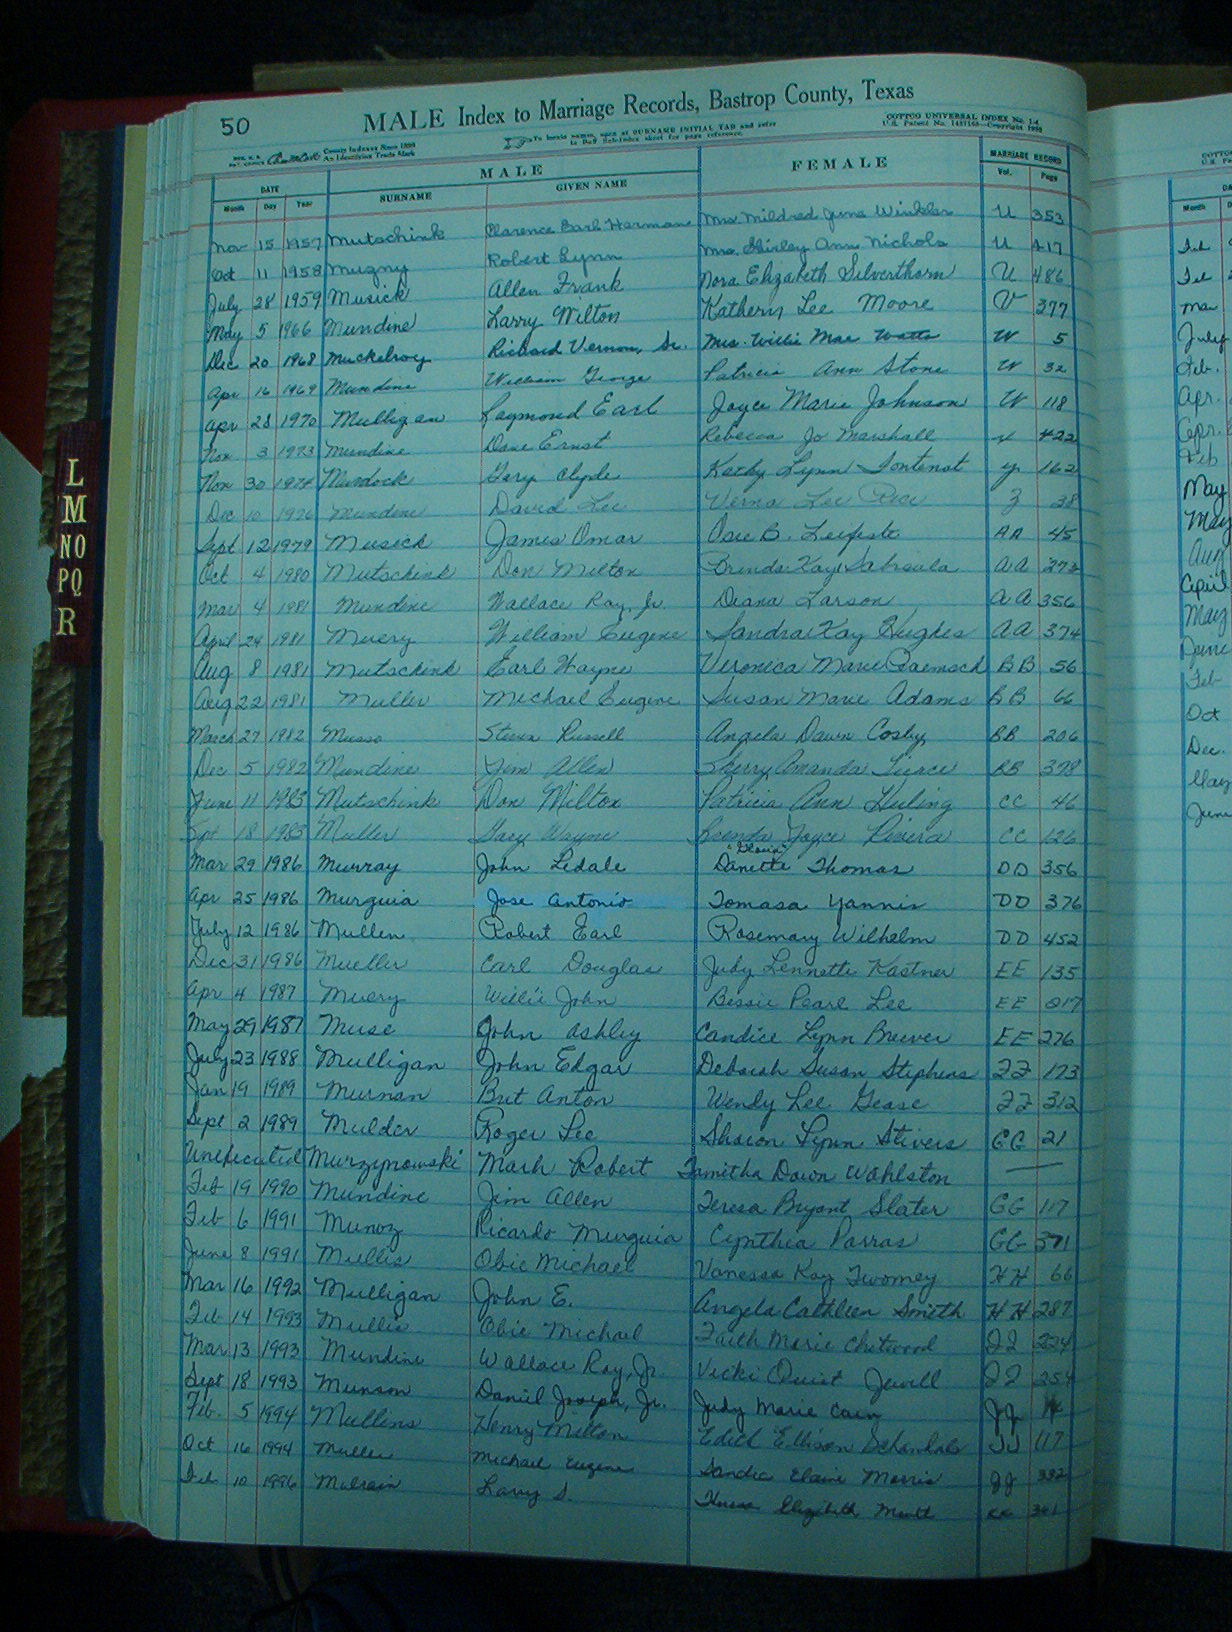 50
MALE Index to Marriage Records, Bastrop County, Texas
To locate names, open at SURNAME INITIAL TAB and refer
COTTCO UNIVERSAL INDEX No. 1-4
County Indexes Since 1888
An Identifying Trade Mark
MALE FEMALE MARRIAGE RECORD
DATE SURNAME GIVEN NAME Vol. Page
Month Day Year
Nov 15 1957 Mutschink Clarence Earl Herman Mrs. Mildred June Winkler U 353
Oct 11 1958 Robert Lynn Mrs. Shirley Ann Nichols U 417
July 28 1959 Musick Allen Frank Nora Elizabeth Silverthorn U 486
May 5 1966 Mundine Larry Wilton Kathern Lee Moore V 377
Dec 20 1968 Muckelroy Richard Vernon, Sr. Mrs. Willie Mae Watts W 5
Apr 16 1969 Mundine William George Patricia Ann Stone W 32
Apr 28 1970 Mulligan Raymond Earl Joyce Marie Johnson W 118
Nov 3 1973 Mundine Dane Ernst Rebecca Jo Marshall 422
Nov 30 1974 Murdock Gary Clyde Kathy Lynn Fontenot Y 162
Dec 10 1976 Mundine David Lee Verna Lee Rice Z 38
Sept 12 1979 Musick James Omar Osie B. Leifeste AA 45
Oct 4 1980 Mutschink Don Milton Brenda Kay AA 273
Mar 4 1981 Mundine Wallace Ray, Jr. Diana Larson AA 356
April 24 1981 Muery William Eugene Sandra Kay Hughes AA 374
Aug 8 1981 Mutschink Earl Wayne Veronica Marie BB 56
Aug 22 1981 Muller Michael Eugene Susan Marie Adams BB 66
March 27 1982 Musso Steven Russell Angela Dawn Cosby BB 206
Dec 5 1982 Mundine Jim Allen Sherry Amanda BB 398
June 11 1983 Mutschink Don Milton Patricia Ann Huling CC 46
18 1983 Muller Gary Wayne Brenda Joyce Rivera CC 126
Mar 29 1986 Murray John Ledale "Gloria" Danette Thomas DD 356
Apr 25 1986 Murguia Jose Antonio Tomasa Yannis DD 376
July 12 1986 Mullen Robert Earl Rosemary Wilhelm DD 452
Dec 31 1986 Mueller Carl Douglas Judy Lennette Kastner EE 135
Apr 4 1987 Muery Willie John Bessie Pearl Lee EE 217
May 29 1987 Muse John Ashley Candice Lynn Brewer EE 276
July 23 1988 Mulligan John Edgar Deborah Susan Stephens FF 173
Jan 19 1989 Murnan Brit Anton Wendy Lee Gease FF 312
Sept 2 1989 Mulder Roger Lee Sharon Lynn Stivers GG 21
Unexecuted Murzynowski Mark Robert Tamitha Dawn Wahlston —
Feb 19 1990 Mundine Jim Allen Teresa Bryant Slater GG 117
Feb 6 1991 Munoz Ricardo Murguia Cynthia Parras GG 371
June 8 1991 Mullis Obie Michael Vanessa Kay Twomey HH 66
Mar 16 1992 Mulligan John E. Angela Cathleen Smith HH 287
Feb 14 1993 Mullis Obie Michael Faith Marie Chitwood II 224
Mar 13 1993 Mundine Wallace Ray, Jr. Vicki Quist Jewell II 254
Sept 18 1993 Munson Daniel Joseph, Jr. Judy Marie Cain JJ
Feb. 5 1994 Mullins Henry Milton Edith Ellison JJ 117
Oct 16 1994 Muller Michael Eugene Sandra Elaine Morris JJ 332
Feb 10 1996 Mulrain Larry S. Elizabeth KK 361
L
M
NO
PQ
R